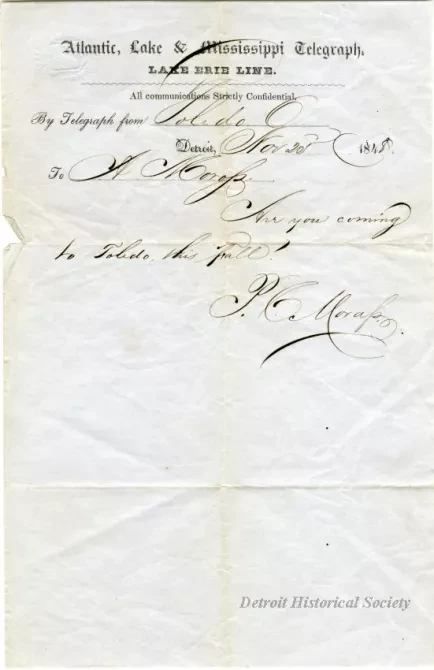 Atlantic, Lake & Mississippi Telegraph,
LAKE ERIE LINE.
All communications Strictly Confidential.
By Telegraph from Toledo O
Detroit, Nov 28 1848.
To A Morass
Are you coming
to Toledo this fall?
P. C. Morass.
Detroit Historical Society